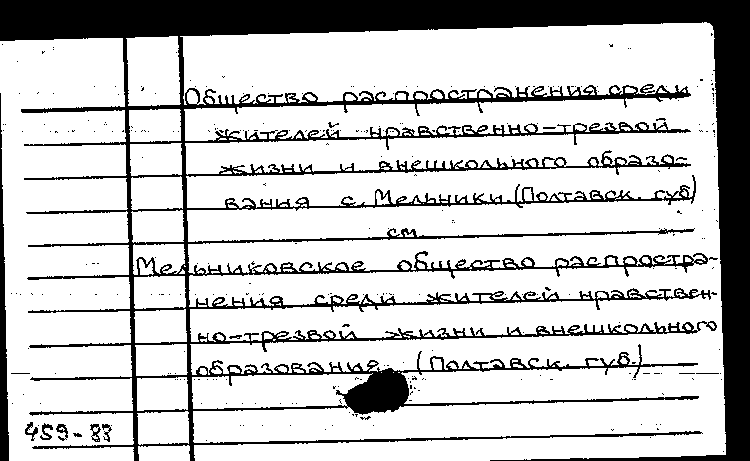 Общество распространения среди
жителей нравственно-трезвой
жизни и внешкольного образо-
вания с. Мельники. (Полтавск. губ)
см.
Мельниковское общество распростра-
нения среди жителей нравствен-
но-трезвой жизни и внешкольного
образования (Полтавск. губ.)
459-88